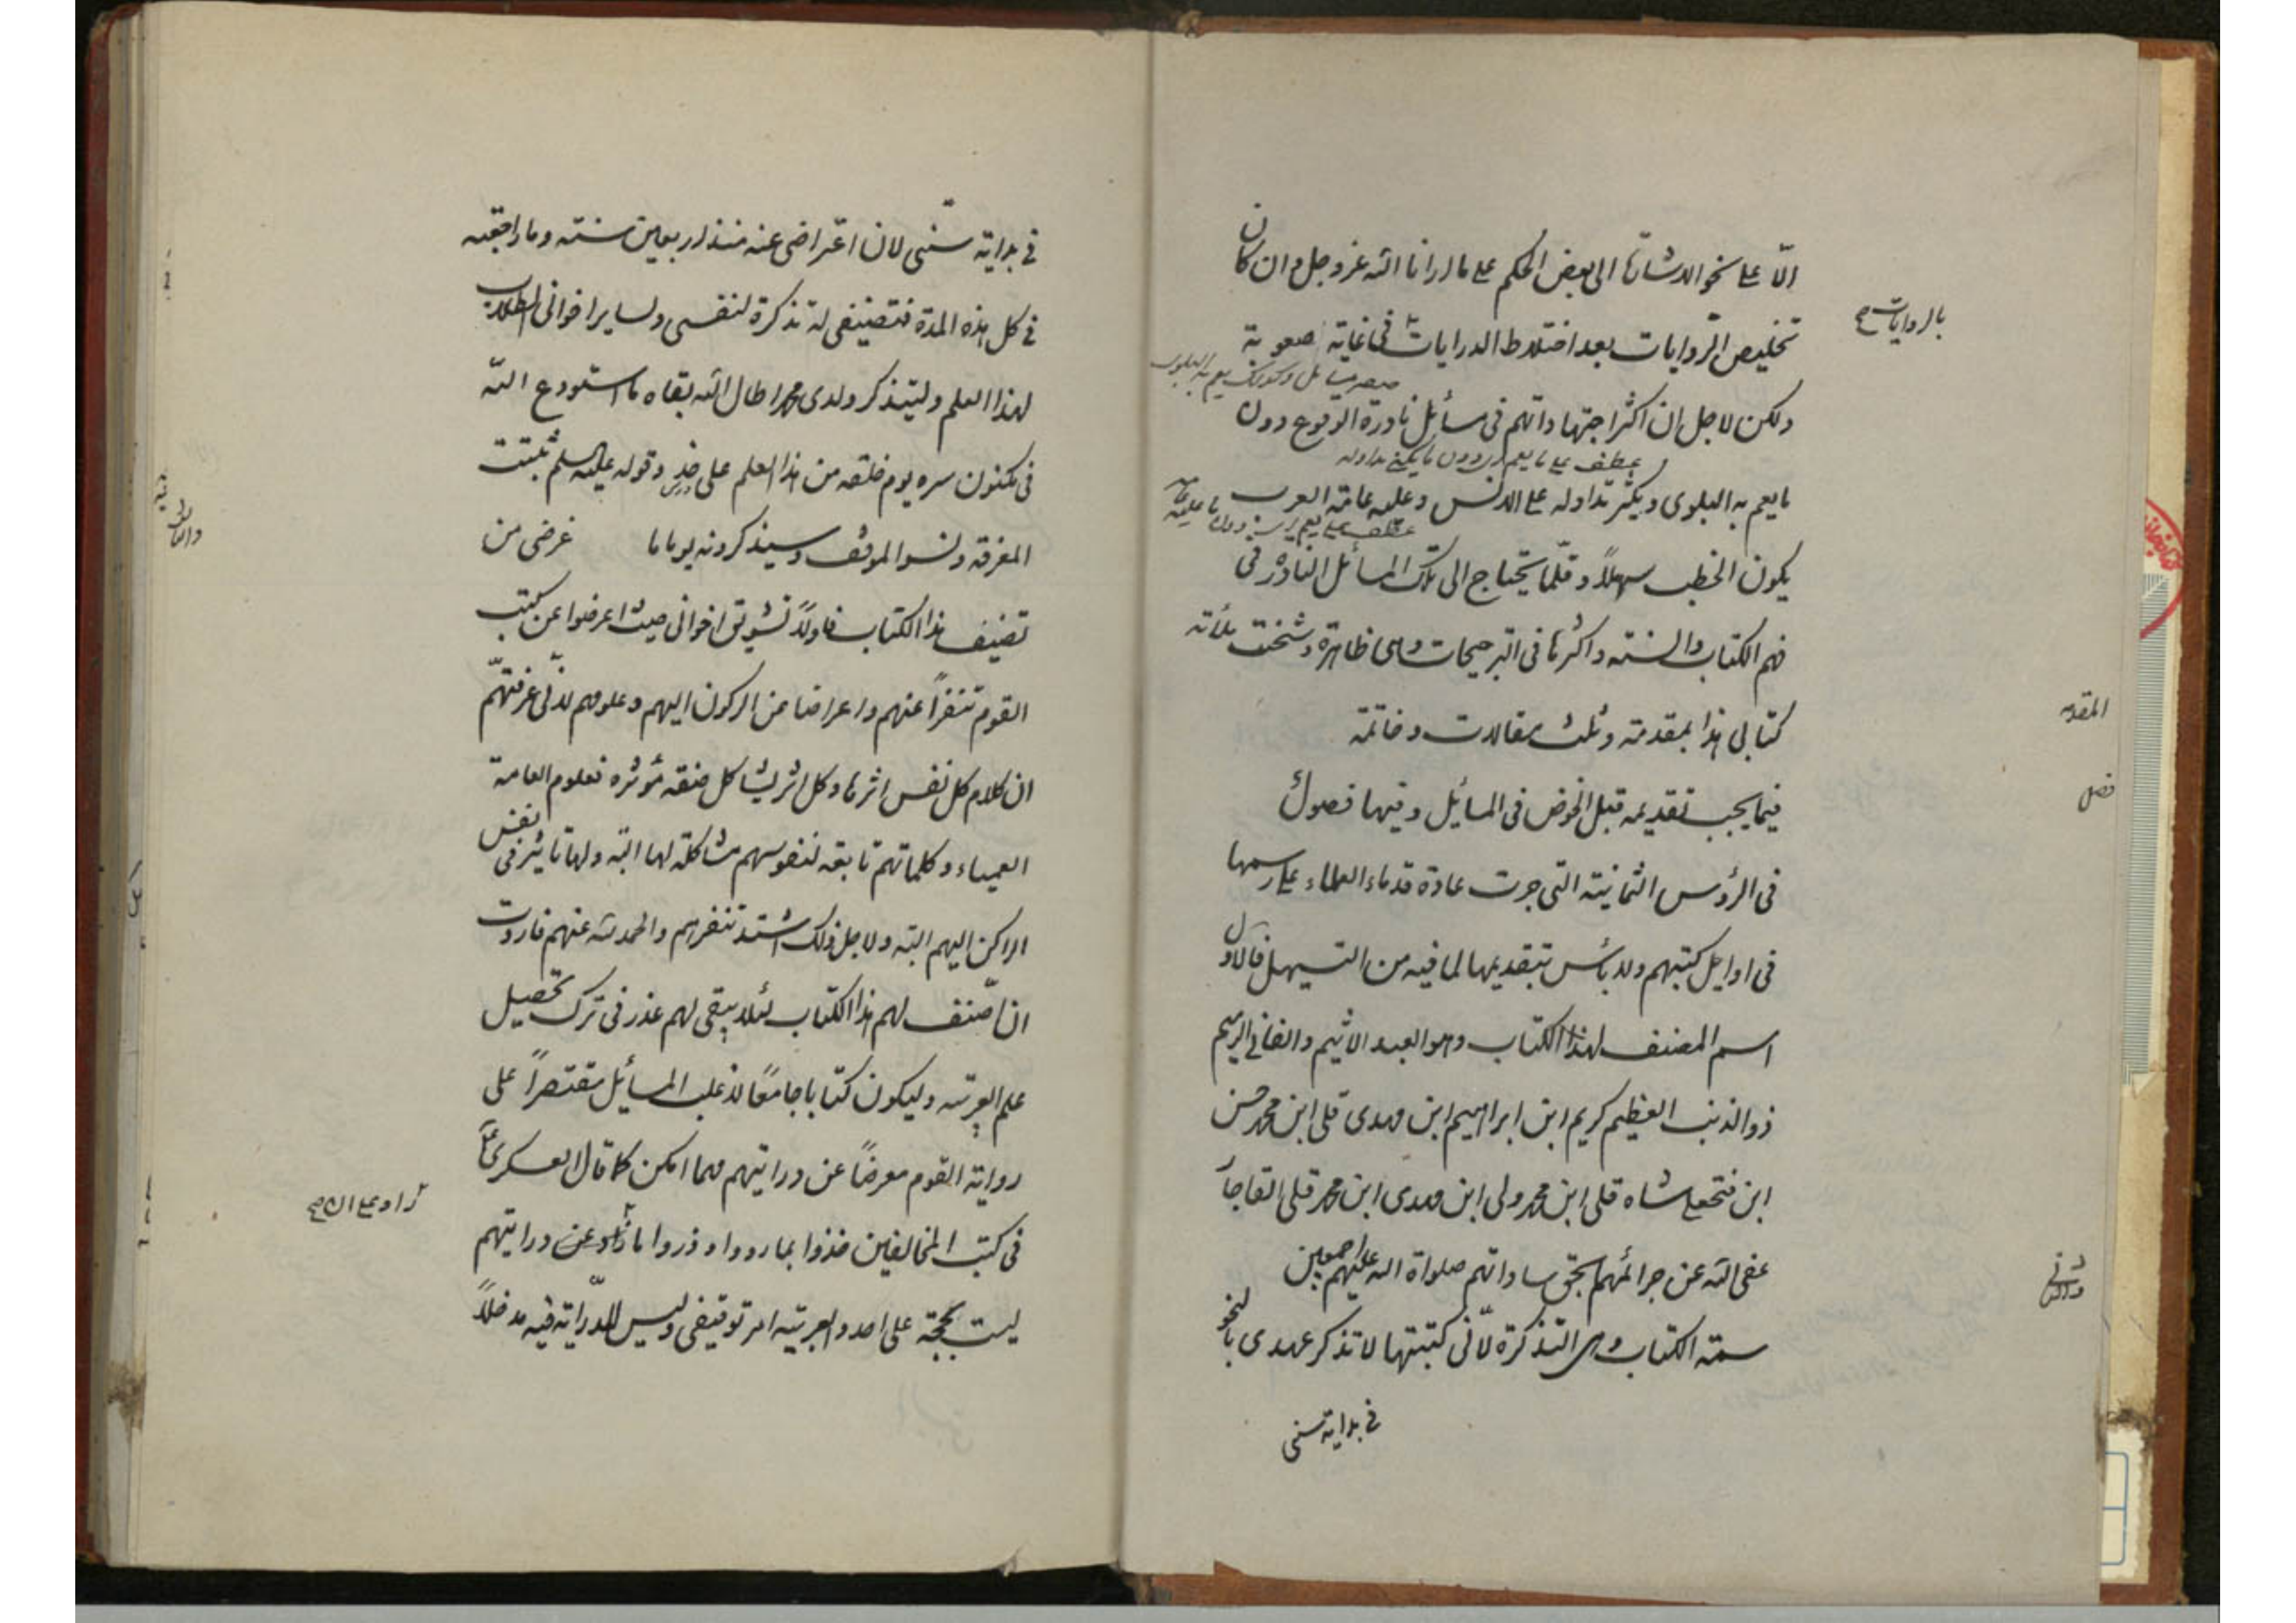 الّا على نحو الاشارة الى بعض الحكم على ما ارانا الله عزوجل و ان كان
بالروايات صح
تخليص الروايات بعد اختلاط الدرايات فى غاية صعوبة
ولكن لاجل ان اكثر اجتهاداتهم فى مسائل نادرة الوقوع دون
عطف على ما يعم اى دون ما يكثر تداوله
ما يعم به البلوى ويكثر تداوله على الالسن وعليه عامة العرب
يكون الخطب سهلاً وقلّما يحتاج الى تلك المسائل النادرة فى
فهم الكتاب والسنة واكثرها فى الترجيحات وهى ظاهرة وشحنت
كتابى هذا بمقدمة وثلث مقالات وخاتمة
المقدمه
فيما يجب تقديمه قبل الخوض فى المسائل وفيها فصول
فصل
فى الرؤس الثمانية التى جرت عادة قدماء العلماء على رسمها
فى اوايل كتبهم ولا بأس بتقديمها لما فيه من التسهيل فالاول
اسم المصنف لهذا الكتاب وهو العبد الاثيم والفانى الرميم
ذو الذنب العظيم كريم ابن ابراهيم ابن مهدى قلى ابن محمد حسن
ابن فتحعلى شاه قلى ابن محمد ولى ابن مهدى ابن محمد قلى القاجار
عفى الله عن جرائمهم بحق ساداتهم صلواة الله عليهم اجمعين
والثانى
سمة الكتاب وهى التذكرة لانّى كتبتها لاتذكر عهدى بالنحو
فى بداية سنى
فى بداية سنّى لان اعتراضى عنه منذ اربعين سنة وما راجعته
فى كل هذه المدة فتصنيفى له تذكرة لنفسى ولساير اخوانى الطلاب
لهذا العلم وليتذكر ولدى محمد اطال الله بقاه ما استودع الله
فى مكنون سره يوم خلقه من هذا العلم على حذو قوله عليه السلم ثبتت
المعرفة ونسوا الموقف وسيذكرونه يوما ما غرضى من
تصنيف هذا الكتاب فاولاً تشويق اخوانى حيث اعرضوا عن كتب
القوم تنفراً عنهم واعراضا عن الركون اليهم وعلومهم لانّى عرفتهم
ان كلام كل نفس اثرها وكل اثر يشاكل صفة مؤثره فعلوم العامة
العمياء وكلماتهم تابعة لنفوسهم مشاكلة لها البتة ولها تاثير فى نفس
الراكن اليهم البتة ولاجل ذلك اشتد تنفرهم والحمد لله عنهم فاردت
ان اصنف لهم هذا الكتاب لئلا يبقى لهم عذر فى ترك تحصيل
علم العربية وليكون كتابا جامعًا لاغلب المسائل مقتصراً على
رواية القوم معرضًا عن درايتهم مهما امكن كما قال العسكرى ع
فى كتب المخالفين خذوا بما رووا وذروا ما راوا عن درايتهم
راوا على ان صح
ليست بحجة على احد والعربية امر توقيفى وليس للدّراية فيه مدخلاً